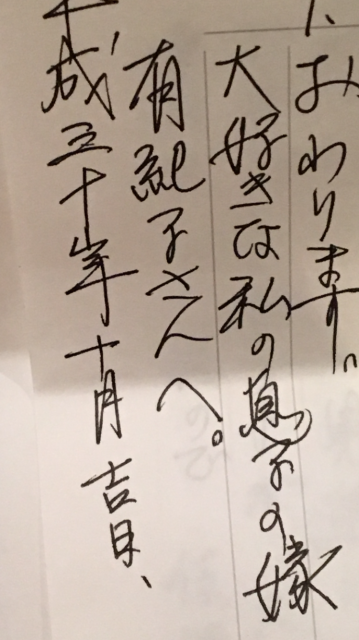 おわります。
大好きな私の息子の嫁
有紀子さんへ。
平成三十年十月吉日、